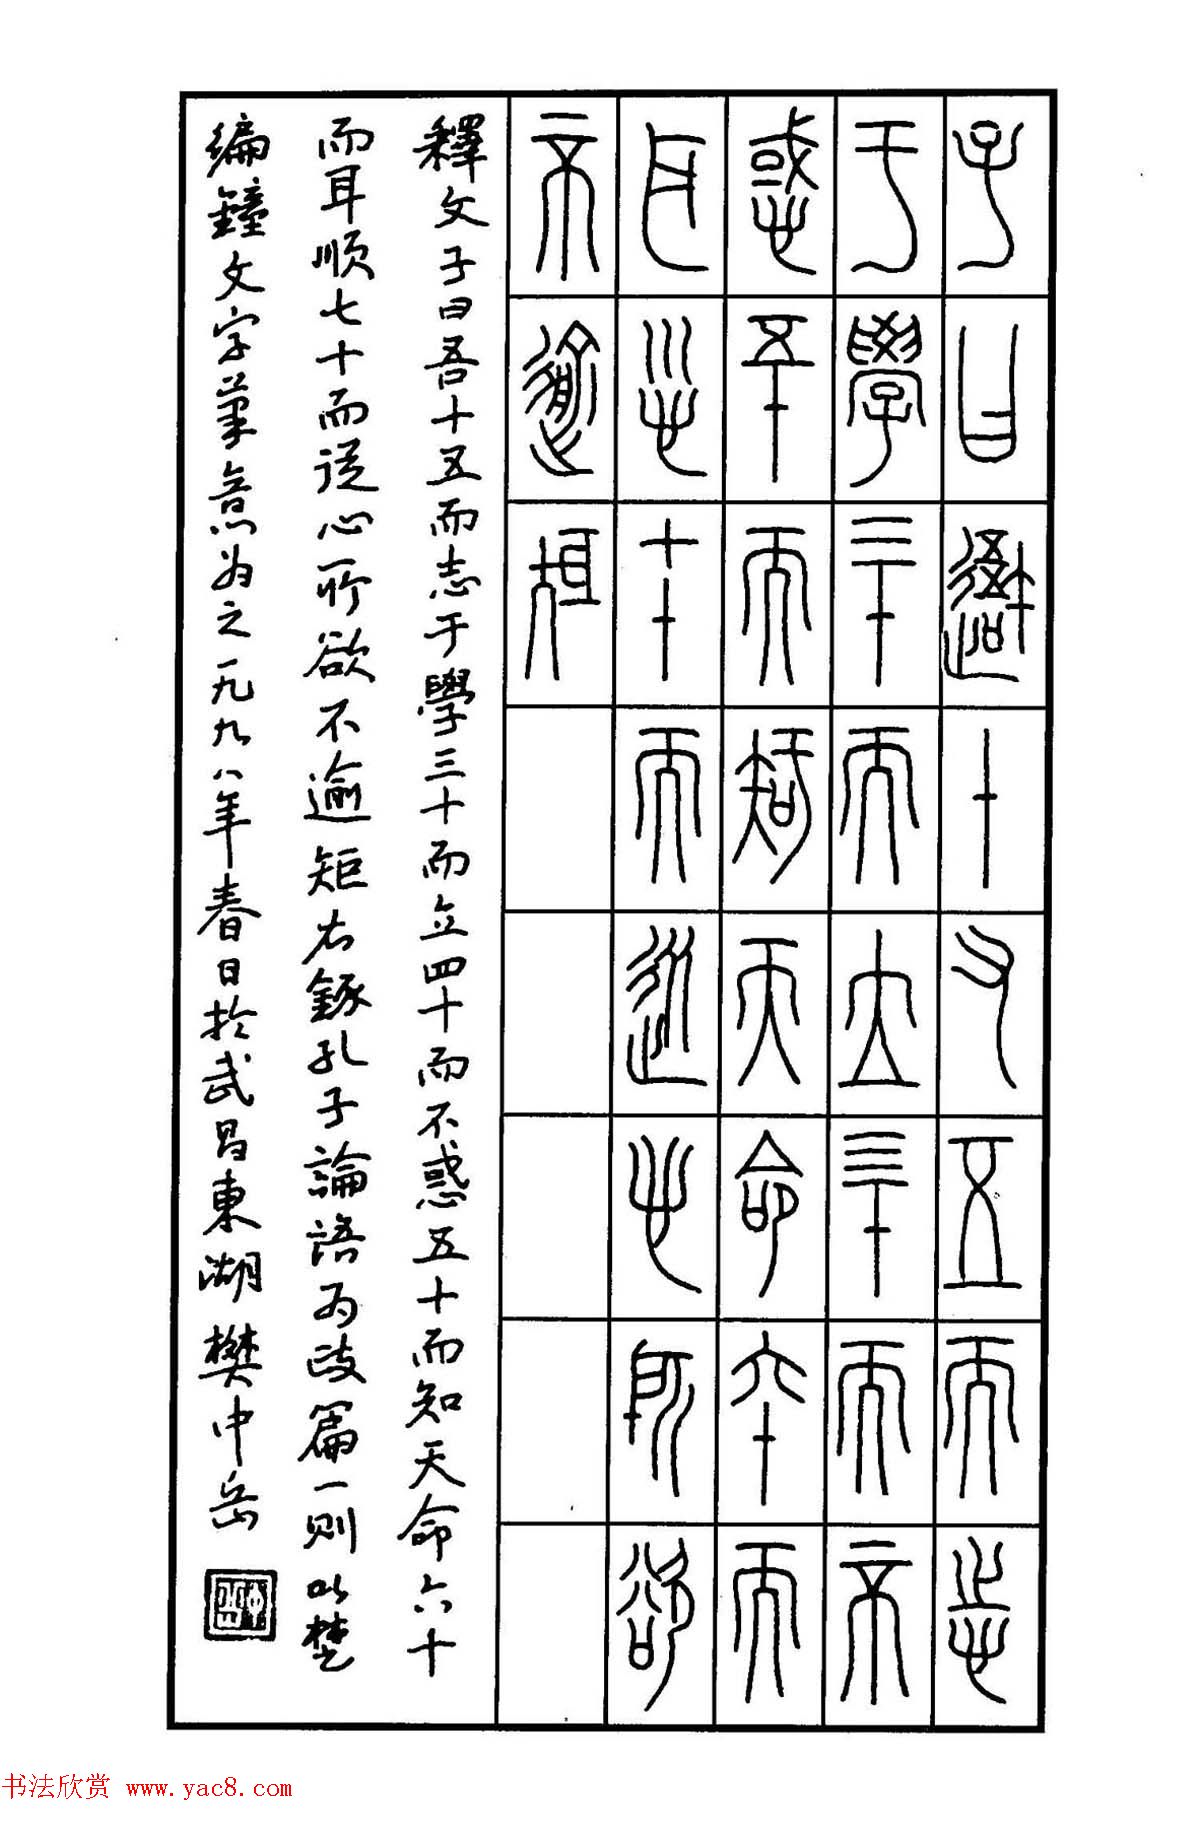 子曰吾十又五而志
于學三十而立四十而不
惑五十而知天命六十而
耳順七十而從心所欲
不逾矩
釋文子曰吾十五而志于學三十而立四十而不惑五十而知天命六十
而耳顺七十而從心所欲不逾矩右錄孔子論語为政篇一则以楚
編鐘文字筆意为之一九九八年春日於武昌東湖樊中岳
中岳
书法欣赏 www.yac8.com